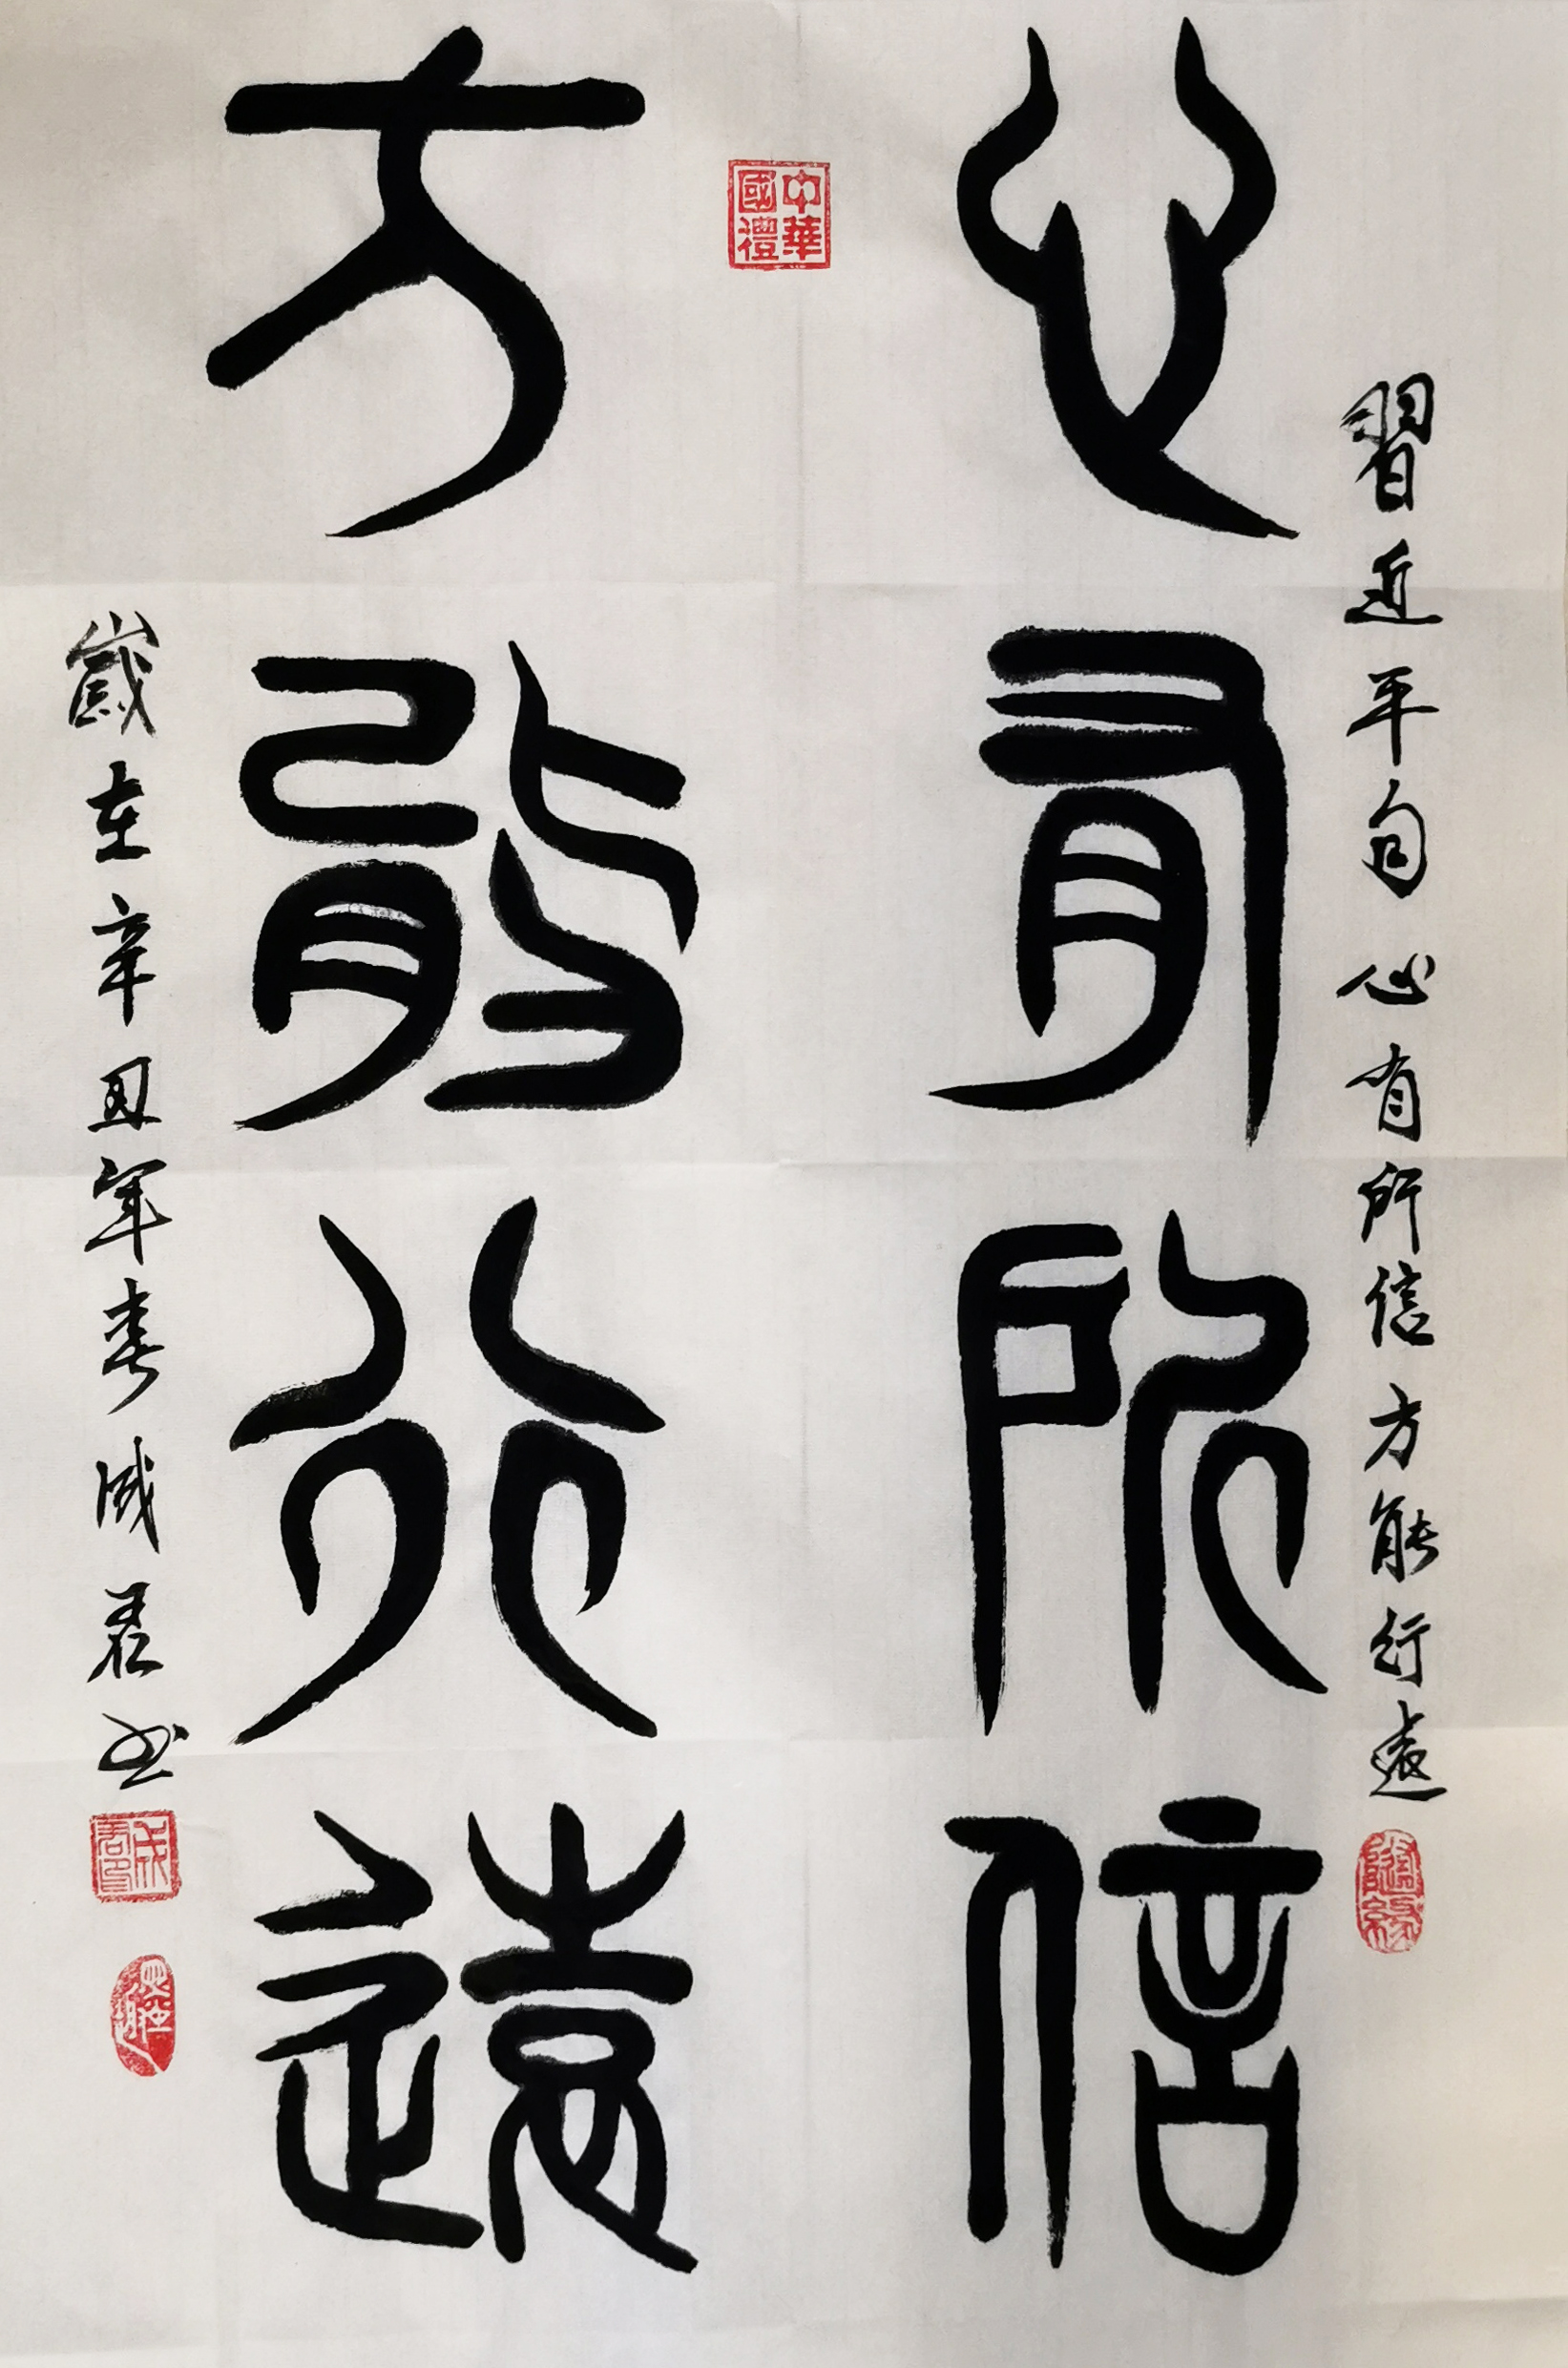 習近平句心有所信方能行遠
心有所信
中華國禮
方能行遠
歲在辛丑年春成君書
隨緣
成君印